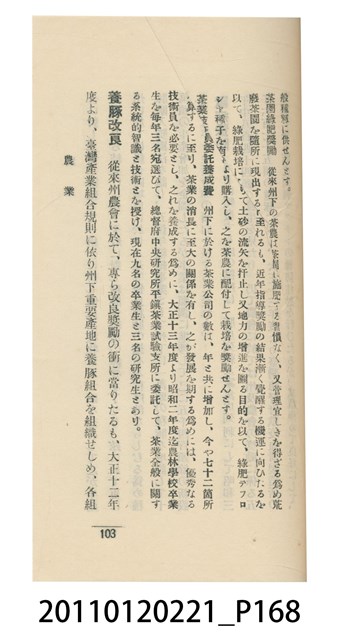 般種別に供せんとす。
茶園綠肥獎勵 從來州下の茶農は茶園に施肥する習慣なく、又管理宜しきを得ざる為め荒
廢茶園を隨所に現出するに至れるも、近年指導獎勵の結果漸く覺醒する機運に向ひたるを
以て、綠肥栽培によつて土砂の流失を扞止し又地力の增進を圖る目的を以て、綠肥テフロ
シア種子を有利に購入し、之を茶農に配付して栽培を獎勵せんとす。
茶業技術員委託養成費 州下に於ける茶業公司の數は、年と共に增加し、今や七十二箇所
を算するに至り、茶業の消長に至大の關係を有し、之が發展を期する爲めには、優秀なる
技術員を必要とし、之れを養成する爲めに、大正十三年度より昭和二年度迄農林學校卒業
生を每年三名宛選びて、總督府中央研究所平鎭茶業試驗支所に委託して、茶業全般に關す
る系統的智識と技術とを授け、現在九名の卒業生と三名の研究生とあり。
養豚改良 從來州農會に於て、專ら改良獎勵の衝に當りたるも、大正十二年
度より、臺灣產業組合規則に依り州下重要產地に養豚組合を組織せしめ、各組
農業
103
20110120221_P168